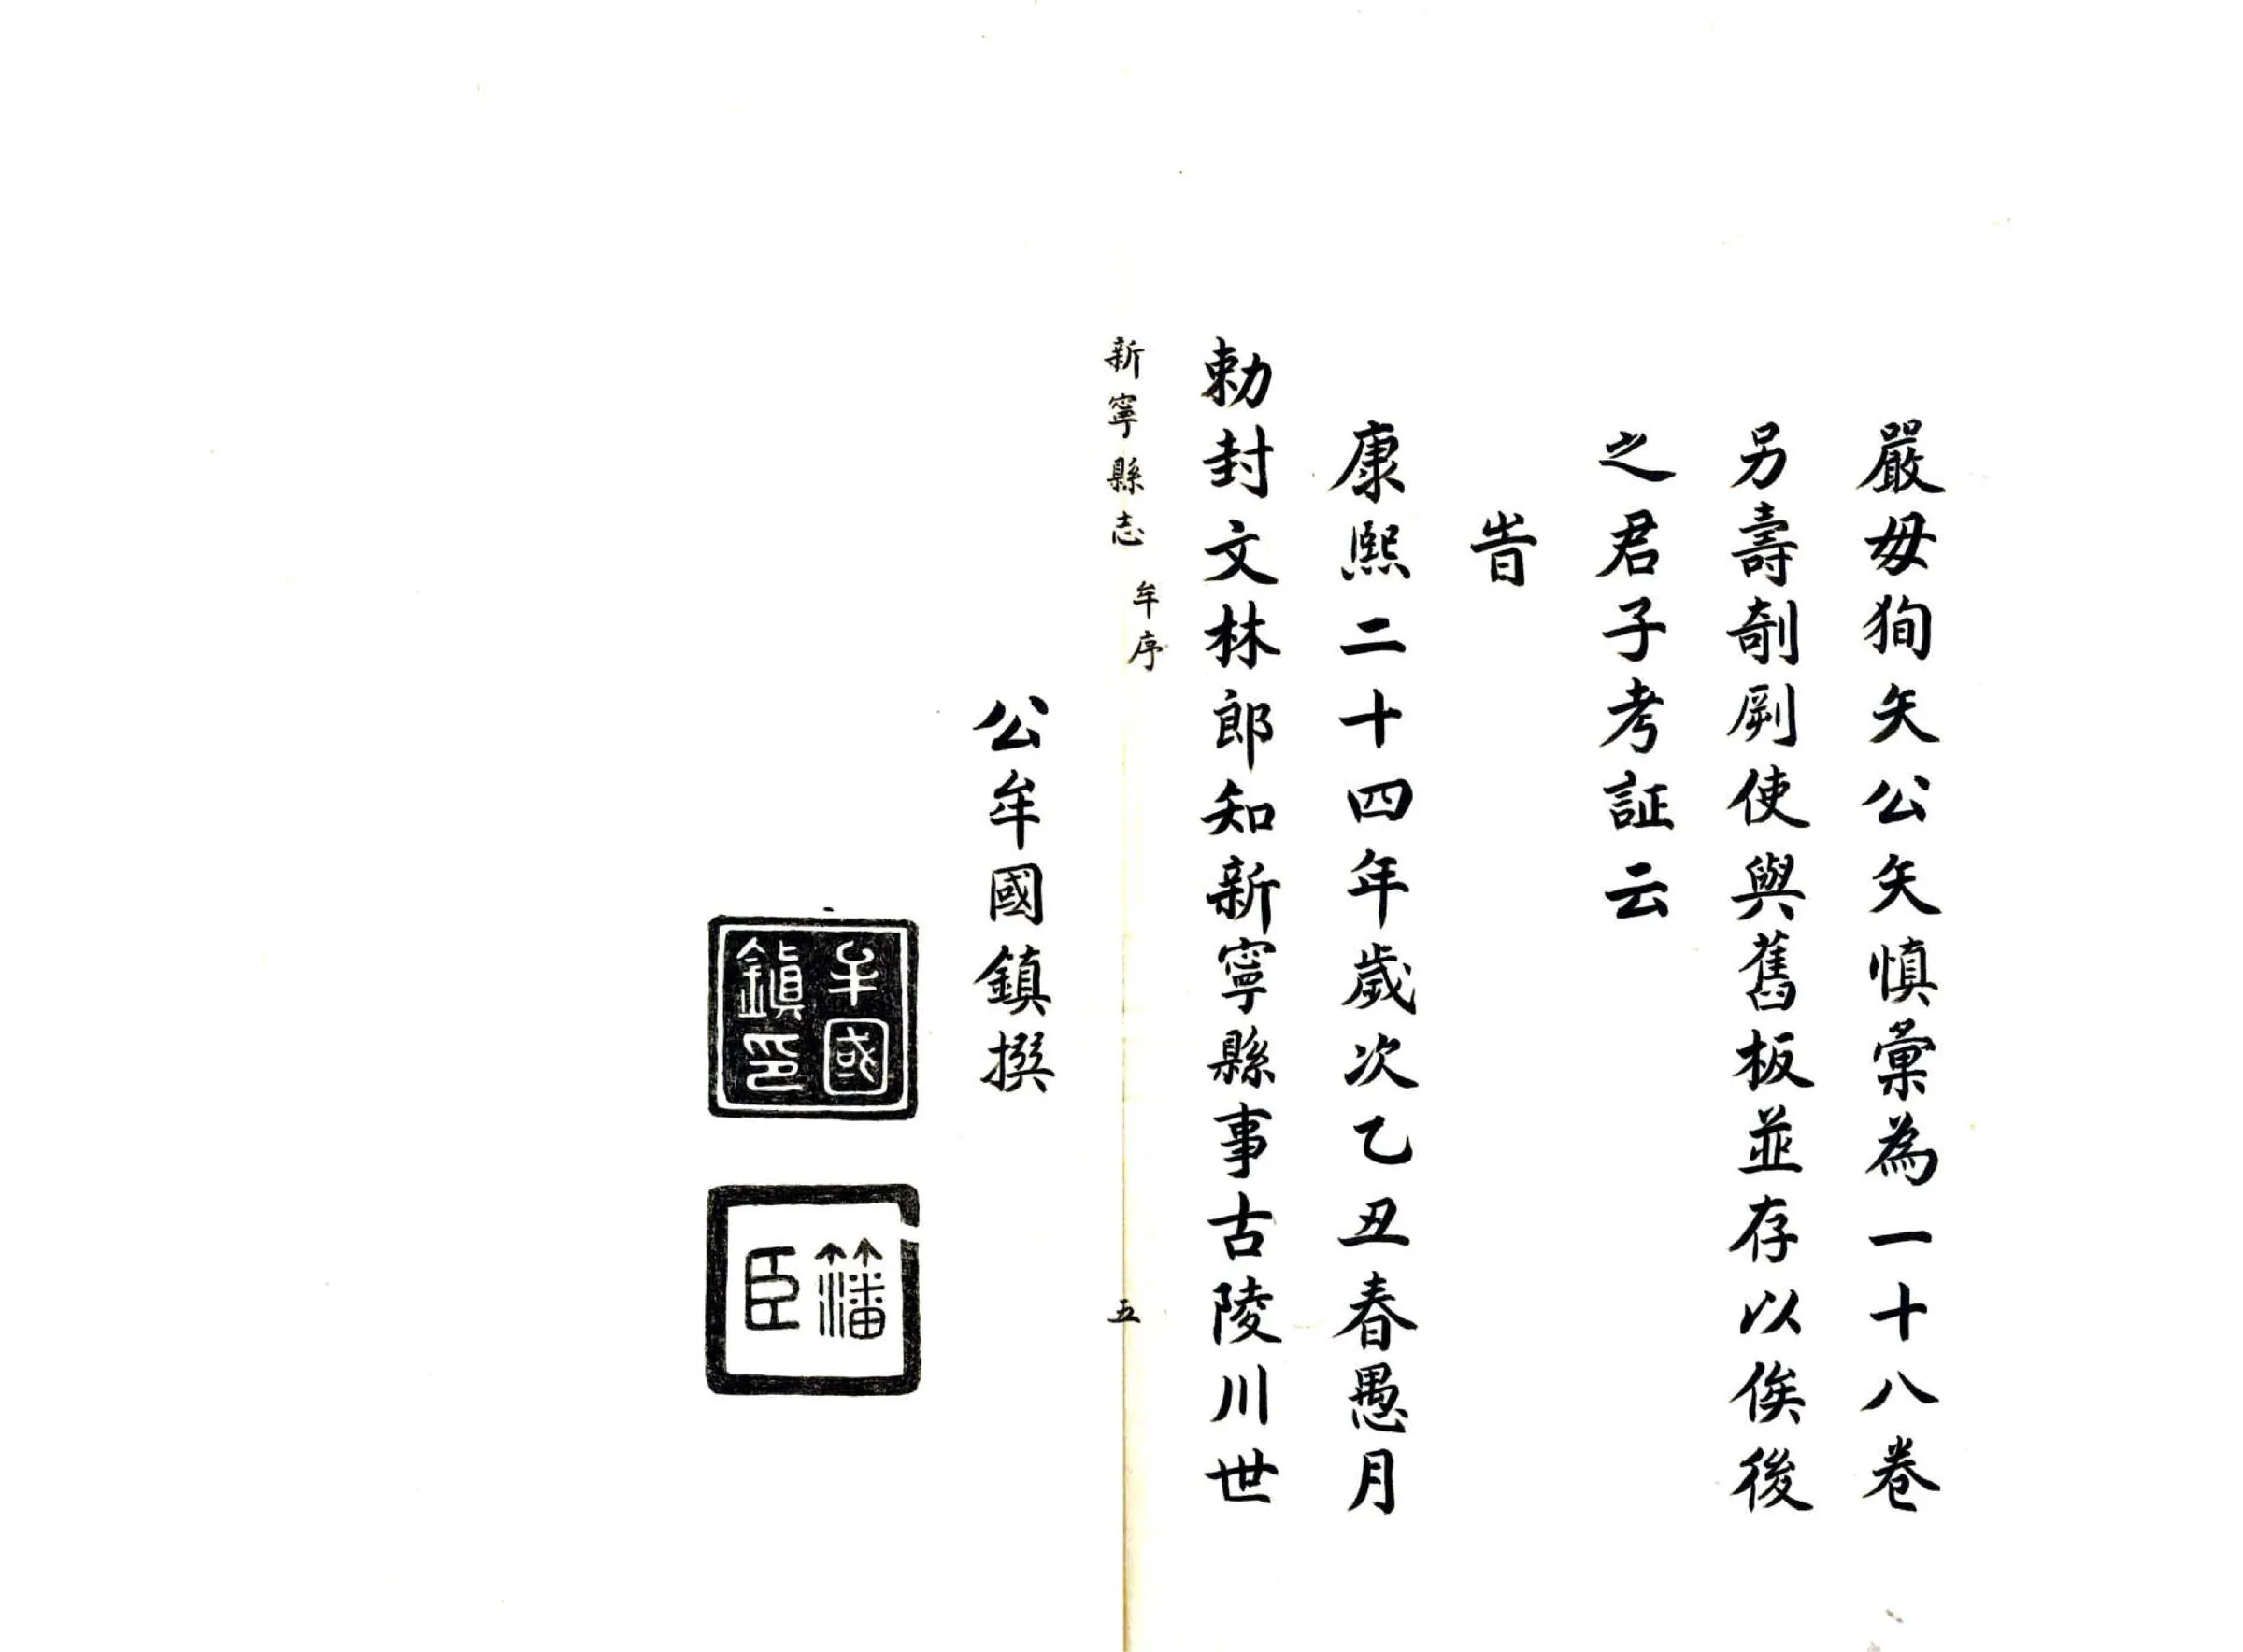 嚴毋狥矢公矢慎彙為一十八卷
另壽剞劂使與舊板並存以俟後
之君子考証云
旹
康熙二十四年歲次乙丑春愚月
勅封文林郎知新寧縣事古陵川世
新寧縣志 牟序 五
公牟國鎮撰
牟國鎮印
籓臣